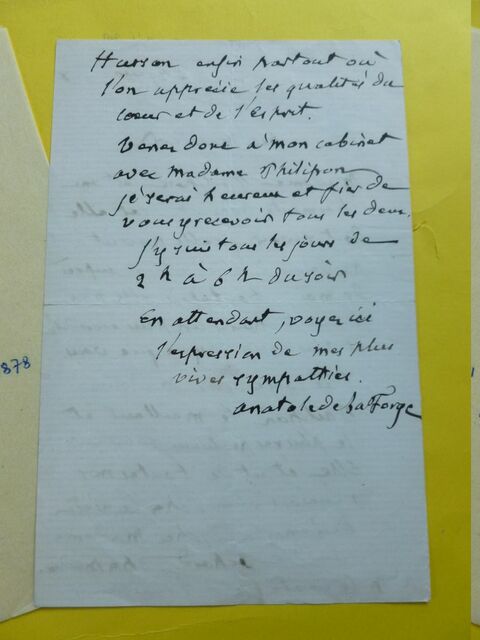 Husson enfin partout où
l'on apprécie les qualités du
cœur et de l'Esprit.
Venez donc à mon cabinet
avec madame Philipon
je serai heureux et fier de
vous y recevoir tous les deux.
j'y suis tous les jours de
2 h à 6 h du soir
En attendant, voyez ici
l'expression de mes plus
vives sympathies.
anatole de la Forge
1878